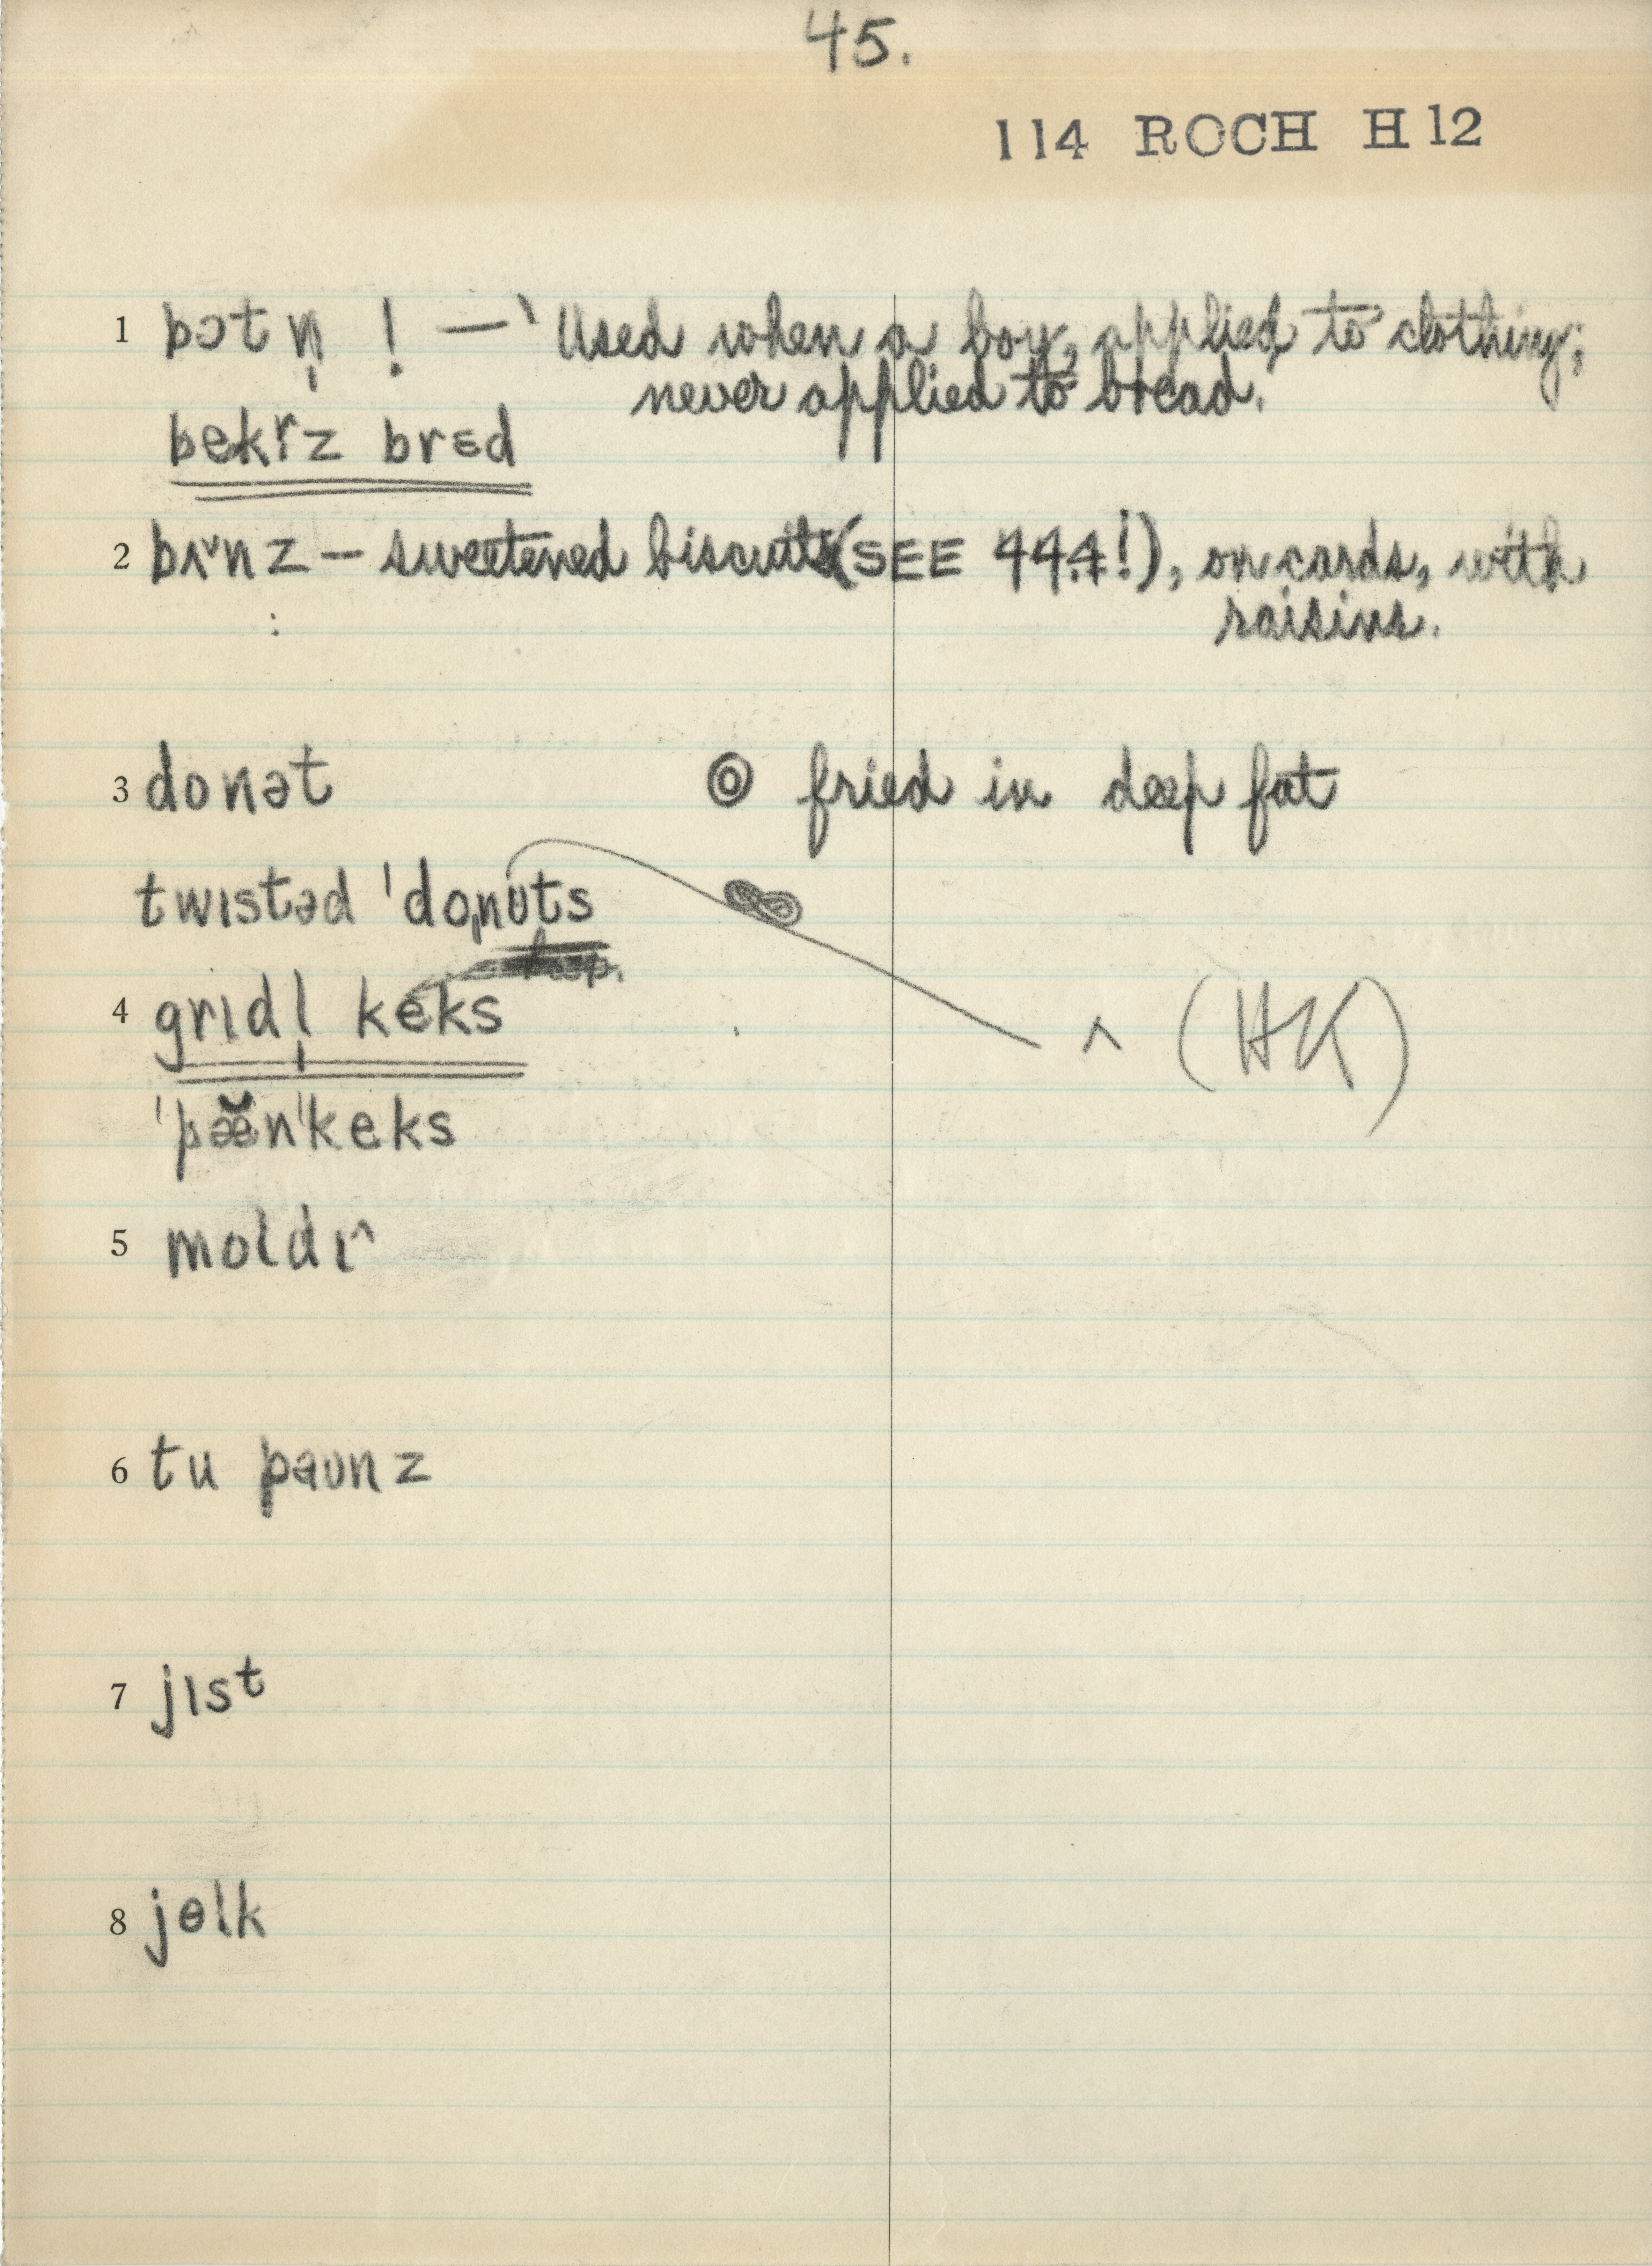 45.
114 ROCH H12
1 bɔtn̩ ! — ‘Used when a boy, applied to clothing;
never applied to bread.
bekɚz brɛd
2 bʌ˅nz — sweetened biscuits (SEE 44.4!), on cards, with
raisins.
3 donət ⓞ fried in deep fat
twɪstəd ˈdoˌnʊts
4 grɪdl̩ keks ^ (HK)
ˈpæ̆nˈkeks
5 moldɪ^
6 tu paʊnz
7 jɪst
8 jɵlk